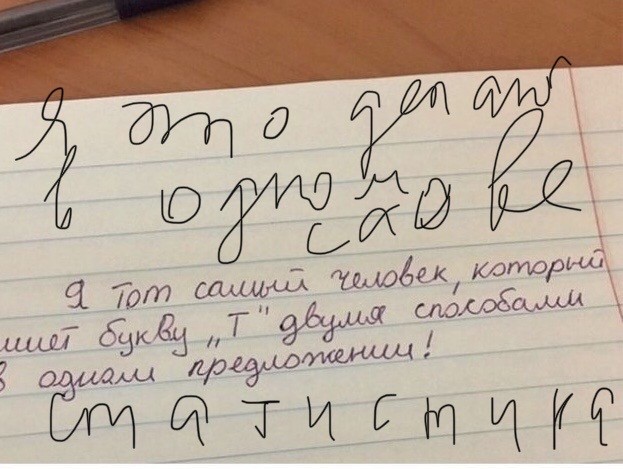 Я это делаю
в одном
слове
Я тот самый человек, который
ишет букву „Т" двумя способами
в одном предложении!
статистика